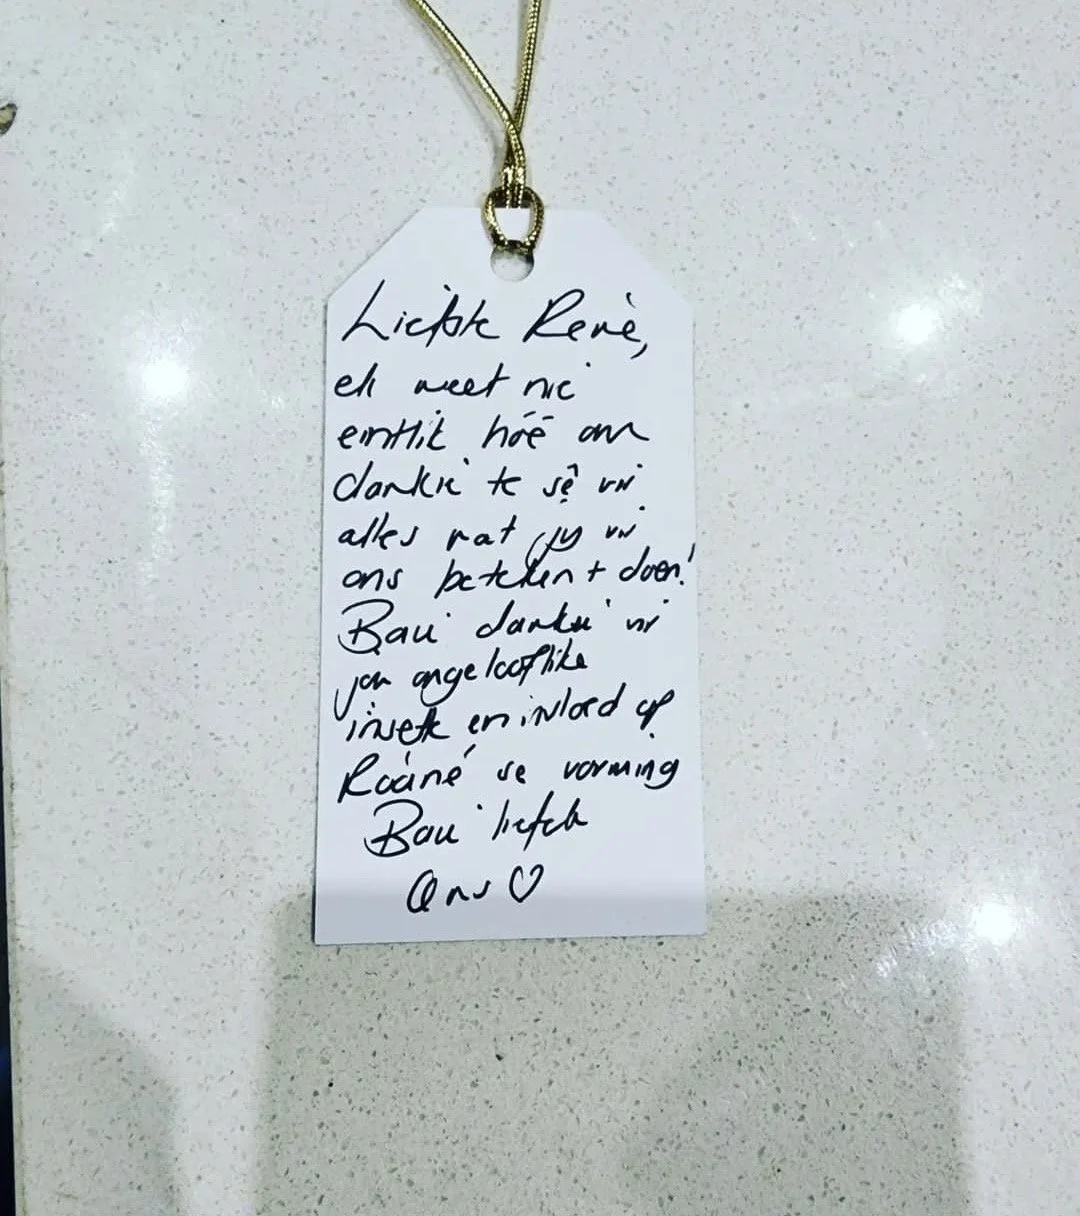 Liefste Renè,
ek weet nie
eintlik hóé om
dankie te sê vir
alles wat jy vir
ons beteken + doen!
Baie dankie vir
jou ongelooflike
insette en invloed op
Roàné se vorming
Baie liefde
Ons ♡